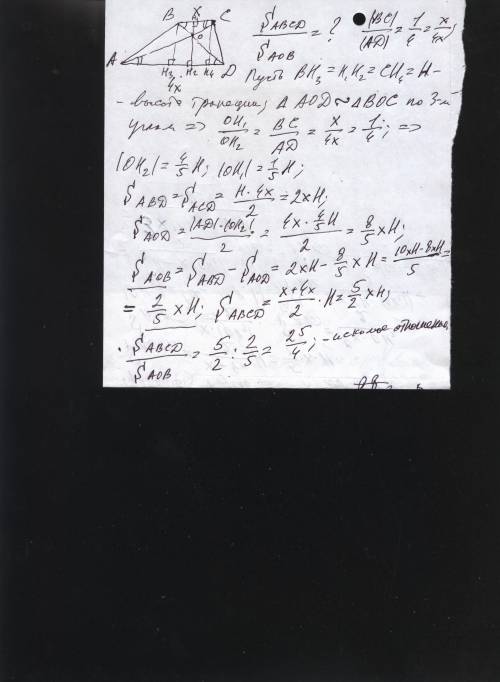 B x C
O
A H₃ H₂ H₄ D
4x
S_ABCD / S_AOB = ? |BC| / |AD| = 1/4 = x/4x;
Пусть BH₃ = H₁H₂ = CH₄ = H –
– высота трапеции; △AOD ~ △BOC по 3-м
углам => OH₁/OH₂ = BC/AD = x/4x = 1/4; =>
|OH₂| = 4/5 H; |OH₁| = 1/5 H;
S_ABD = S_ACD = H·4x/2 = 2xH;
S_AOD = |AD|·|OH₂|/2 = 4x·4/5H/2 = 8/5 xH;
S_AOB = S_ABD – S_AOD = 2xH – 8/5 xH = 10xH-8xH/5 =
= 2/5 xH; S_ABCD = x+4x/2 · H = 5/2 xH;
S_ABCD / S_AOB = 5/2 : 2/5 = 25/4; – искомое отношение.